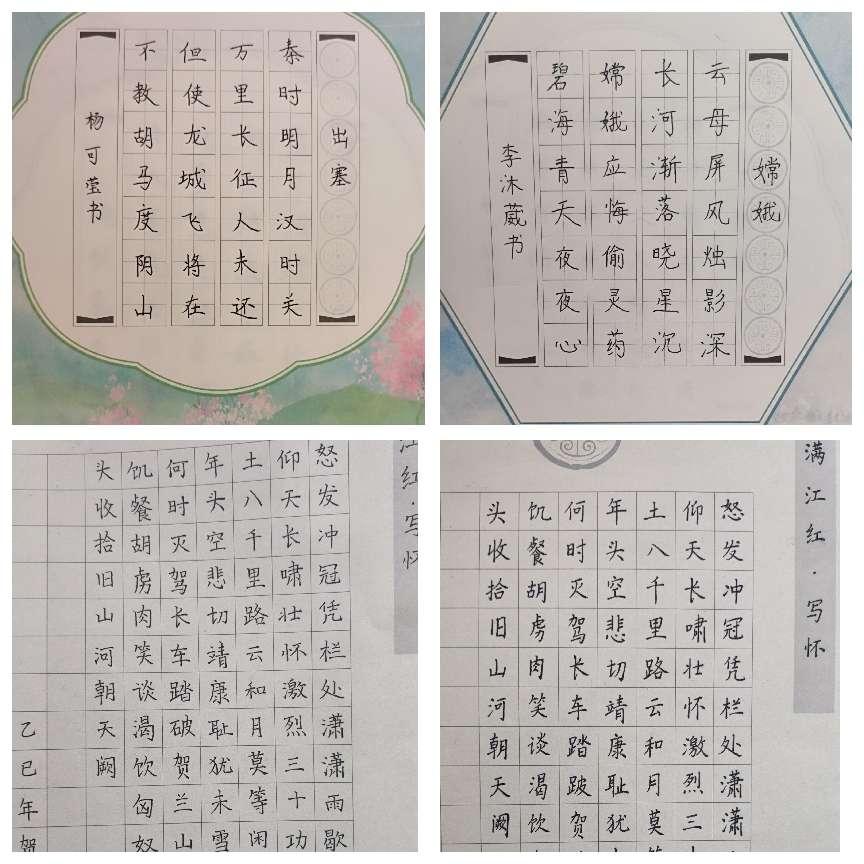 出塞
秦时明月汉时关
万里长征人未还
但使龙城飞将在
不教胡马度阴山
杨可莹书
嫦娥
云母屏风烛影深
长河渐落晓星沉
嫦娥应悔偷灵药
碧海青天夜夜心
李沐葳书
江红·写怀
怒发冲冠凭栏处潇潇雨歇
仰天长啸壮怀激烈三十功
土八千里路云和月莫等闲
年头空悲切靖康耻犹未雪
何时灭驾长车踏破贺兰山
饥餐胡虏肉笑谈渴饮匈奴
头收拾旧山河朝天阙
乙巳年贺
满江红·写怀
怒发冲冠凭栏处潇潇
仰天长啸壮怀激烈三
土八千里路云和月莫
年头空悲切靖康耻犹
何时灭驾长车踏跛贺
饥餐胡虏肉笑谈渴饮
头收拾旧山河朝天阙